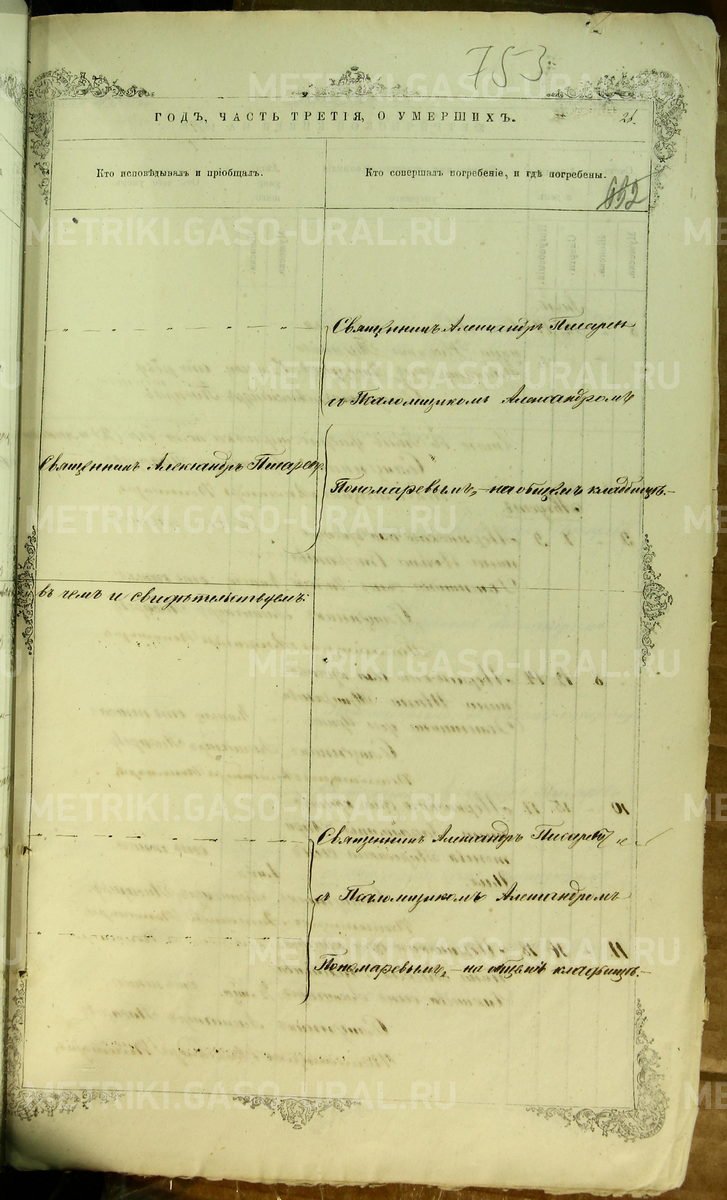 753
ГОДЪ, ЧАСТЬ ТРЕТІЯ, О УМЕРШИХЪ.
21.
Кто исповѣдывалъ и пріобщалъ.
Кто совершалъ погребеніе, и гдѣ погребены.
Священникъ Александръ Писарев
съ Псаломщикомъ Александромъ
Священникъ Александръ Писарев
Пономаревымъ, - на общемъ кладбищѣ. -
въ чемъ и свидѣтельствуемъ:
Священникъ Александръ Писаревъ
съ Псаломщикомъ Александромъ
Пономаревымъ, - на общемъ кладбищѣ. -
METRIKI.GASO-URAL.RU